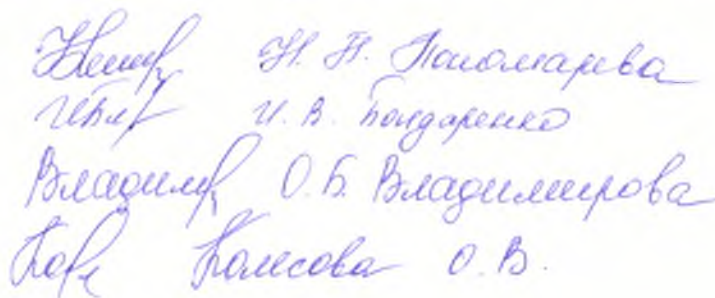 Н. Н. Пономарева
И. В. Бондаренко
Владимир О. Б. Владимирова
Колесова О. В.